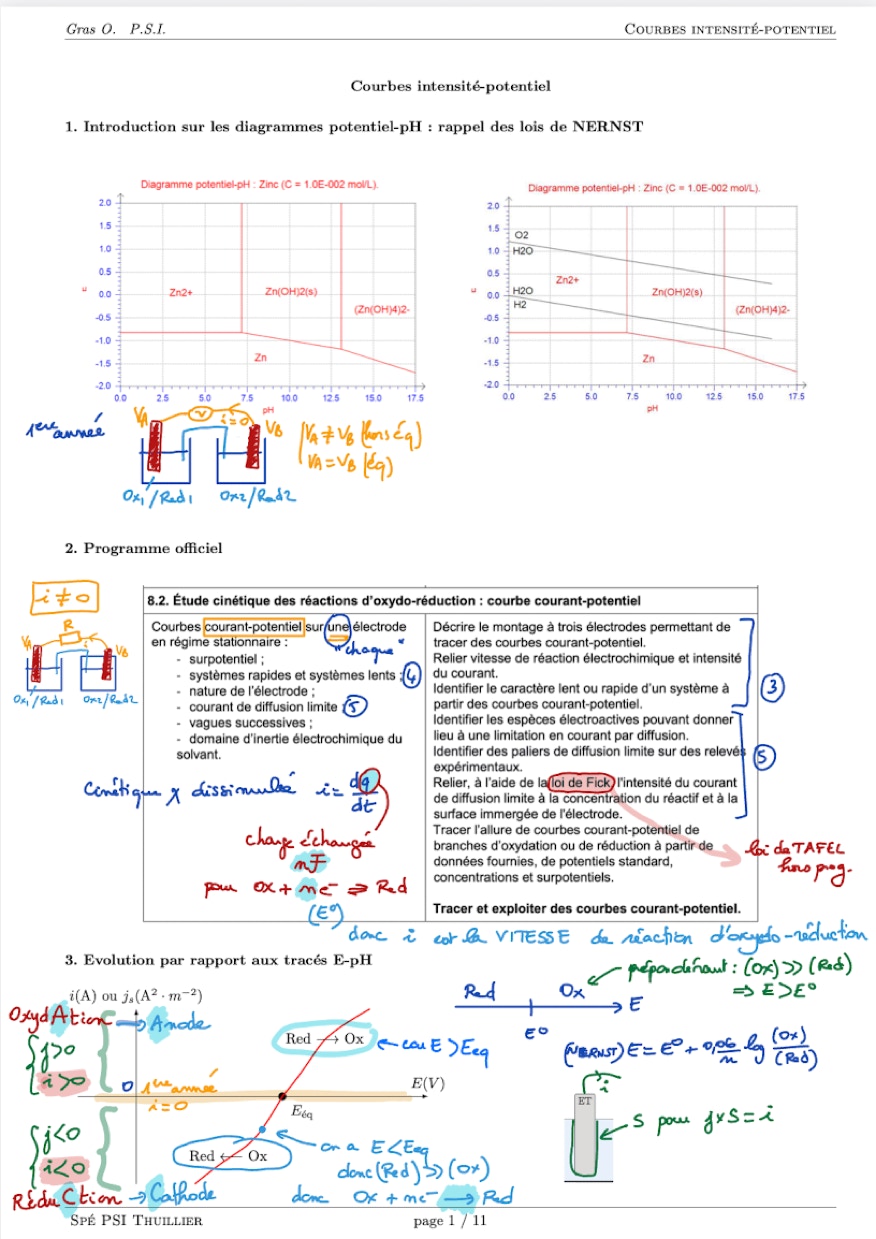 Gras O. P.S.I. COURBES INTENSITÉ-POTENTIEL
Courbes intensité-potentiel
1. Introduction sur les diagrammes potentiel-pH : rappel des lois de NERNST
Diagramme potentiel-pH : Zinc (C = 1.0E-002 mol/L).
2.0
1.5
1.0
0.5
0.0
-0.5
-1.0
-1.5
-2.0
Zn2+
Zn(OH)2(s)
(Zn(OH)4)2-
Zn
E
0.0 2.5 5.0 7.5 10.0 12.5 15.0 17.5
pH
Diagramme potentiel-pH : Zinc (C = 1.0E-002 mol/L).
2.0
1.5
1.0
0.5
0.0
-0.5
-1.0
-1.5
-2.0
O2
H2O
H2O
H2
Zn2+
Zn(OH)2(s)
(Zn(OH)4)2-
Zn
E
0.0 2.5 5.0 7.5 10.0 12.5 15.0 17.5
pH
1ère année
VA V i=0 VB
VA ≠ VB (hors éq)
VA = VB (éq)
Ox1/Red1 Ox2/Red2
2. Programme officiel
i ≠ 0
R
VA i VB
Ox1/Red1 Ox2/Red2
8.2. Étude cinétique des réactions d'oxydo-réduction : courbe courant-potentiel
Courbes courant-potentiel sur une électrode
"chaque"
en régime stationnaire :
- surpotentiel ;
- systèmes rapides et systèmes lents ; 4
- nature de l'électrode ;
- courant de diffusion limite ; 5
- vagues successives ;
- domaine d'inertie électrochimique du
solvant.
Décrire le montage à trois électrodes permettant de
tracer des courbes courant-potentiel.
Relier vitesse de réaction électrochimique et intensité
du courant.
Identifier le caractère lent ou rapide d'un système à
partir des courbes courant-potentiel.
3
Identifier les espèces électroactives pouvant donner
lieu à une limitation en courant par diffusion.
Identifier des paliers de diffusion limite sur des relevés
expérimentaux.
Relier, à l'aide de la loi de Fick, l'intensité du courant
de diffusion limite à la concentration du réactif et à la
surface immergée de l'électrode.
5
Tracer l'allure de courbes courant-potentiel de
branches d'oxydation ou de réduction à partir de
données fournies, de potentiels standard,
concentrations et surpotentiels.
Tracer et exploiter des courbes courant-potentiel.
loi de TAFEL
hors prog.
Cinétique dissimulée i = dq/dt
charge échangée
nF
pour Ox + ne- ⇒ Red
(E°)
donc i est la VITESSE de réaction d'oxydo-réduction
3. Evolution par rapport aux tracés E-pH
prépondérant : (Ox) >> (Red)
⇒ E > E°
Red Ox E
E°
(NERNST) E = E° + 0,06/n log (Ox)/(Red)
i(A) ou js(A² · m⁻²)
OxydAtion → Anode
j>0
i>0
Red → Ox
← car E > Eeq
0 1ère année
i=0
E(V)
Eéq
j<0
i<0
Red ← Ox
on a E < Eeq
donc (Red) >> (Ox)
donc Ox + ne- → Red
RéduCtion → Cathode
i
ET
S pour j×S = i
SPÉ PSI THUILLIER page 1 / 11